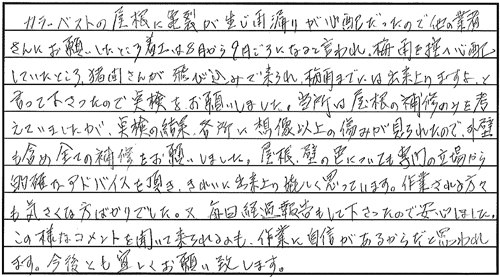 カラーベストの屋根に亀裂が生じ雨漏りが心配だったので他の業者
さんにお願いしたところ着工は8月から9月ごろになると言われ、梅雨を控え心配
していたところ、猪岡さんが飛び込みで来られ、梅雨までには出来上りますよ、と
言って下さったので点検をお願いしました。当所は屋根の補修のみを考
えていましたが、点検の結果、各所に想像以上の傷みが見られたので、外壁
も含め全ての補修をお願いしました。屋根、壁の色についても専門の立場から
的確なアドバイスを頂き、きれいに出来上り嬉しく思っています。作業される方々
も気さくな方ばかりでした。又、毎回経過報告もして下さったので安心しました。
この様なコメントを聞いて来られるのも、作業に自信があるからだと思われ
ます。今後とも宜しくお願い致します。